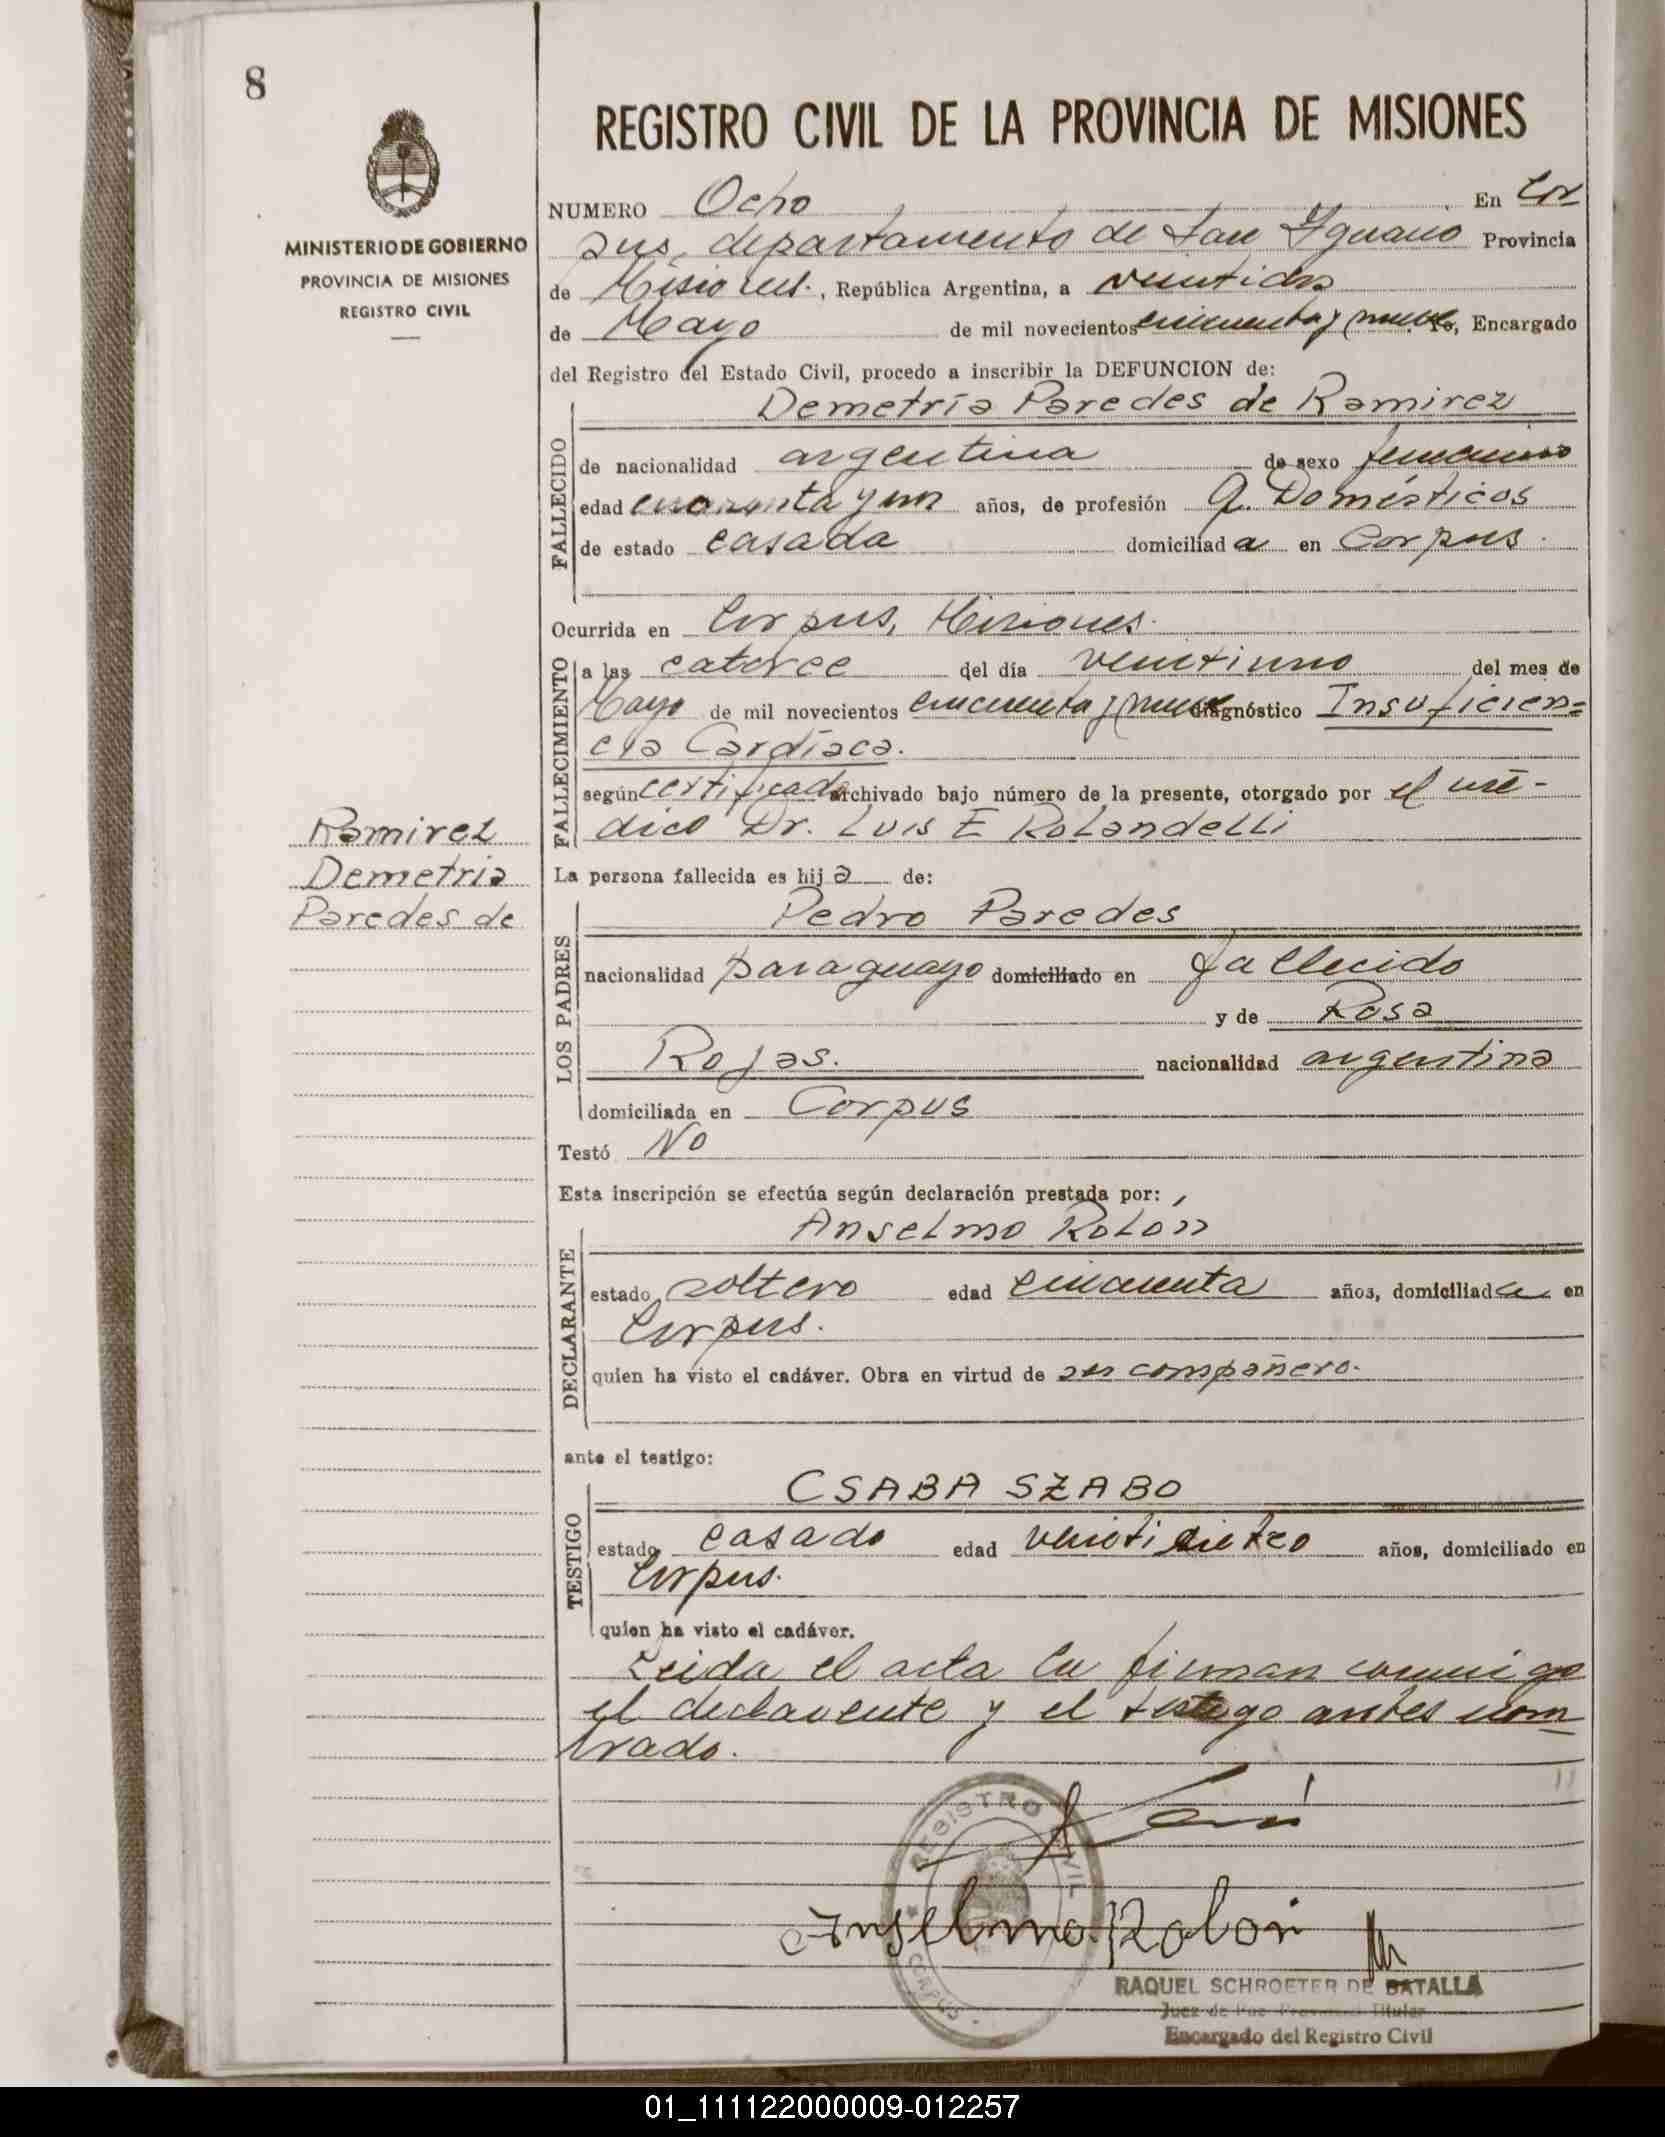 8
MINISTERIO DE GOBIERNO
PROVINCIA DE MISIONES
REGISTRO CIVIL
REGISTRO CIVIL DE LA PROVINCIA DE MISIONES
NUMERO Ocho En Cor
pus, departamento de San Ygnacio Provincia
de Misiones., República Argentina, a veintidos
de Mayo de mil novecientos cincuenta y nueve Yo, Encargado
del Registro del Estado Civil, procedo a inscribir la DEFUNCION de:
Demetria Paredes de Ramirez
FALLECIDO
de nacionalidad argentina de sexo femenino
edad cuarenta y un años, de profesión Q. Domésticos
de estado casada domiciliada en Corpus.
Ocurrida en Corpus, Misiones.
FALLECIMIENTO
a las catorce del día veintiuno del mes de
Mayo de mil novecientos cincuenta y nueve diagnóstico Insuficien=
cia Cardíaca.
según certificado archivado bajo número de la presente, otorgado por el mé-
dico Dr. Luis E Rolandelli
Ramirez
Demetria
Paredes de
La persona fallecida es hija de:
LOS PADRES
Pedro Paredes
nacionalidad paraguayo domiciliado en fallecido
y de Rosa
Rojas. nacionalidad argentina
domiciliada en Corpus
Testó No
Esta inscripción se efectúa según declaración prestada por:
DECLARANTE
Anselmo Rolón
estado soltero edad cincuenta años, domiciliado en
Corpus.
quien ha visto el cadáver. Obra en virtud de su compañero.
ante el testigo:
TESTIGO
CSABA SZABO
estado casado edad años, domiciliado en
Corpus.
quien ha visto el cadáver.
Leida el acta la firman conmigo
el declarente y el testigo antes nom
brado.
REGISTRO CIVIL
CORPUS
Anselmo Rolon
RAQUEL SCHROETER DE BATALLA
Juez de Paz Titular
Encargado del Registro Civil
01_111122000009-012257